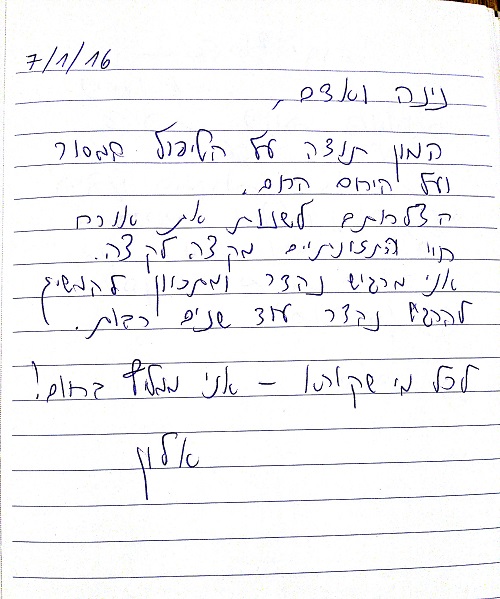 7/1/16
נינה ואדם,
המון תודה על הטיפול המסור
ועל היחס החם.
הצלחתם לשנות את אורח
חיי התזונתיים מקצה לקצה.
אני מרגיש נהדר ומתכוון להמשיך
להרגיש נהדר עוד שנים רבות.
לכל מי שקורא - אני ממליץ בחום!
אלון